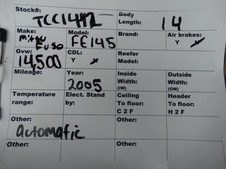 Stock#:
TCC1442
Body
Length:
14
Make:
Mitsu
Fuso
Model:
FE145
Brand:
Air brakes:
Y
Gvw:
14,500
CDL:
Y
Reefer
Model:
Mileage:
Year:
2005
Inside
Width:
(IW)
Outside
Width:
(OW)
Temperature
range:
Elect. Stand
by:
Ceiling
To floor:
C 2 F
Header
To floor:
H 2 F
Other:
Automatic
Other:
Other:
Other:
Other: